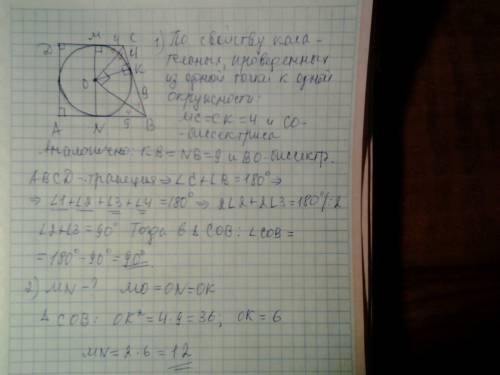 D M 4 C
1) По свойству каса-
тельных, проведенных
из одной точки к одной
окружности:
MC=CK=4 и CO-
-биссектриса
4
K
O
9
A N 9 B
Аналогично: KB=NB=9 и BO-биссектр.
ABCD-трапеция ⇒ ∠C+∠B=180° ⇒
⇒ ∠1+∠2+∠3+∠4=180° ⇒ 2∠2+2∠3=180° /:2
∠2+∠3=90° Тогда в ΔCOB: ∠COB=
=180°-90°=90°
2) MN-? MO=ON=OK
Δ COB: OK²=4·9=36, OK=6
MN=2·6=12